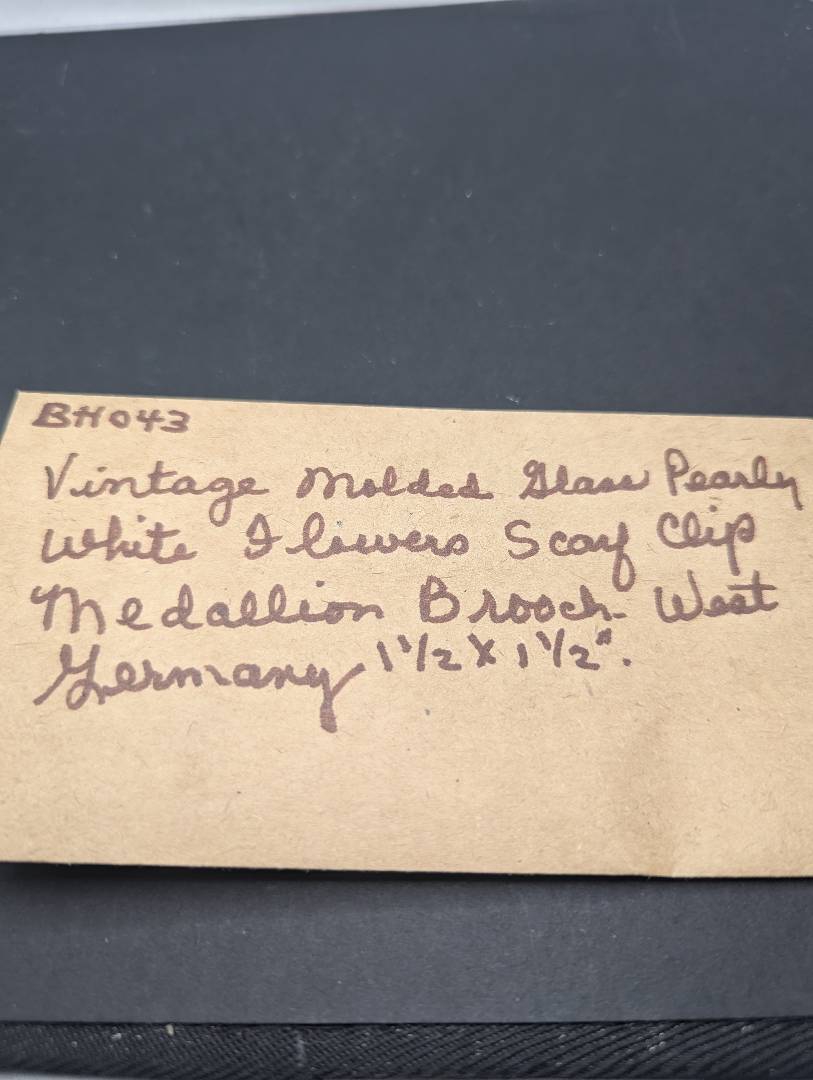 BH043
Vintage Molded Glass Pearly
White Flowers Scarf Clip
Medallion Brooch West
Germany 1 1/2 X 1 1/2".